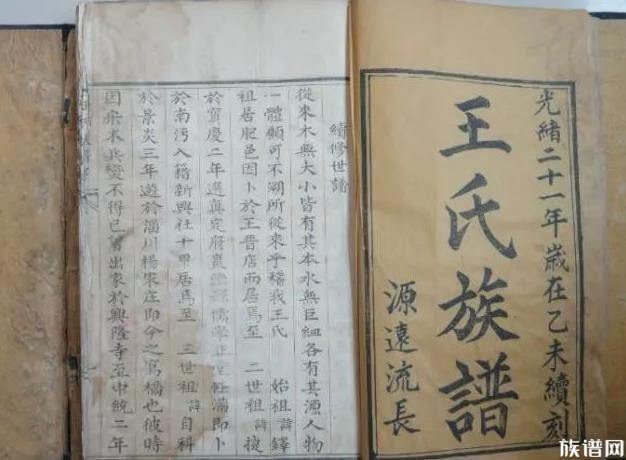 光緒二十一年歲在乙未續刻
王氏族譜
源遠流長
續修世譜
從來木無大小皆有其本水無巨細各有其源人物
一體頗可不溯所從來乎稽我王氏 始祖諱鐸
祖居肥邑因卜於王晉店而居焉至 二世祖諱
於寶慶二年選真定府 儒學正 任滿即卜
於南汚入籍新興社十甲居焉至 三世祖諱自科
於景炎三年遊於淄川楊家庄即今之寫橋也彼時
因 本兵變不得已 出家於興隆寺至中統二年
族谱网